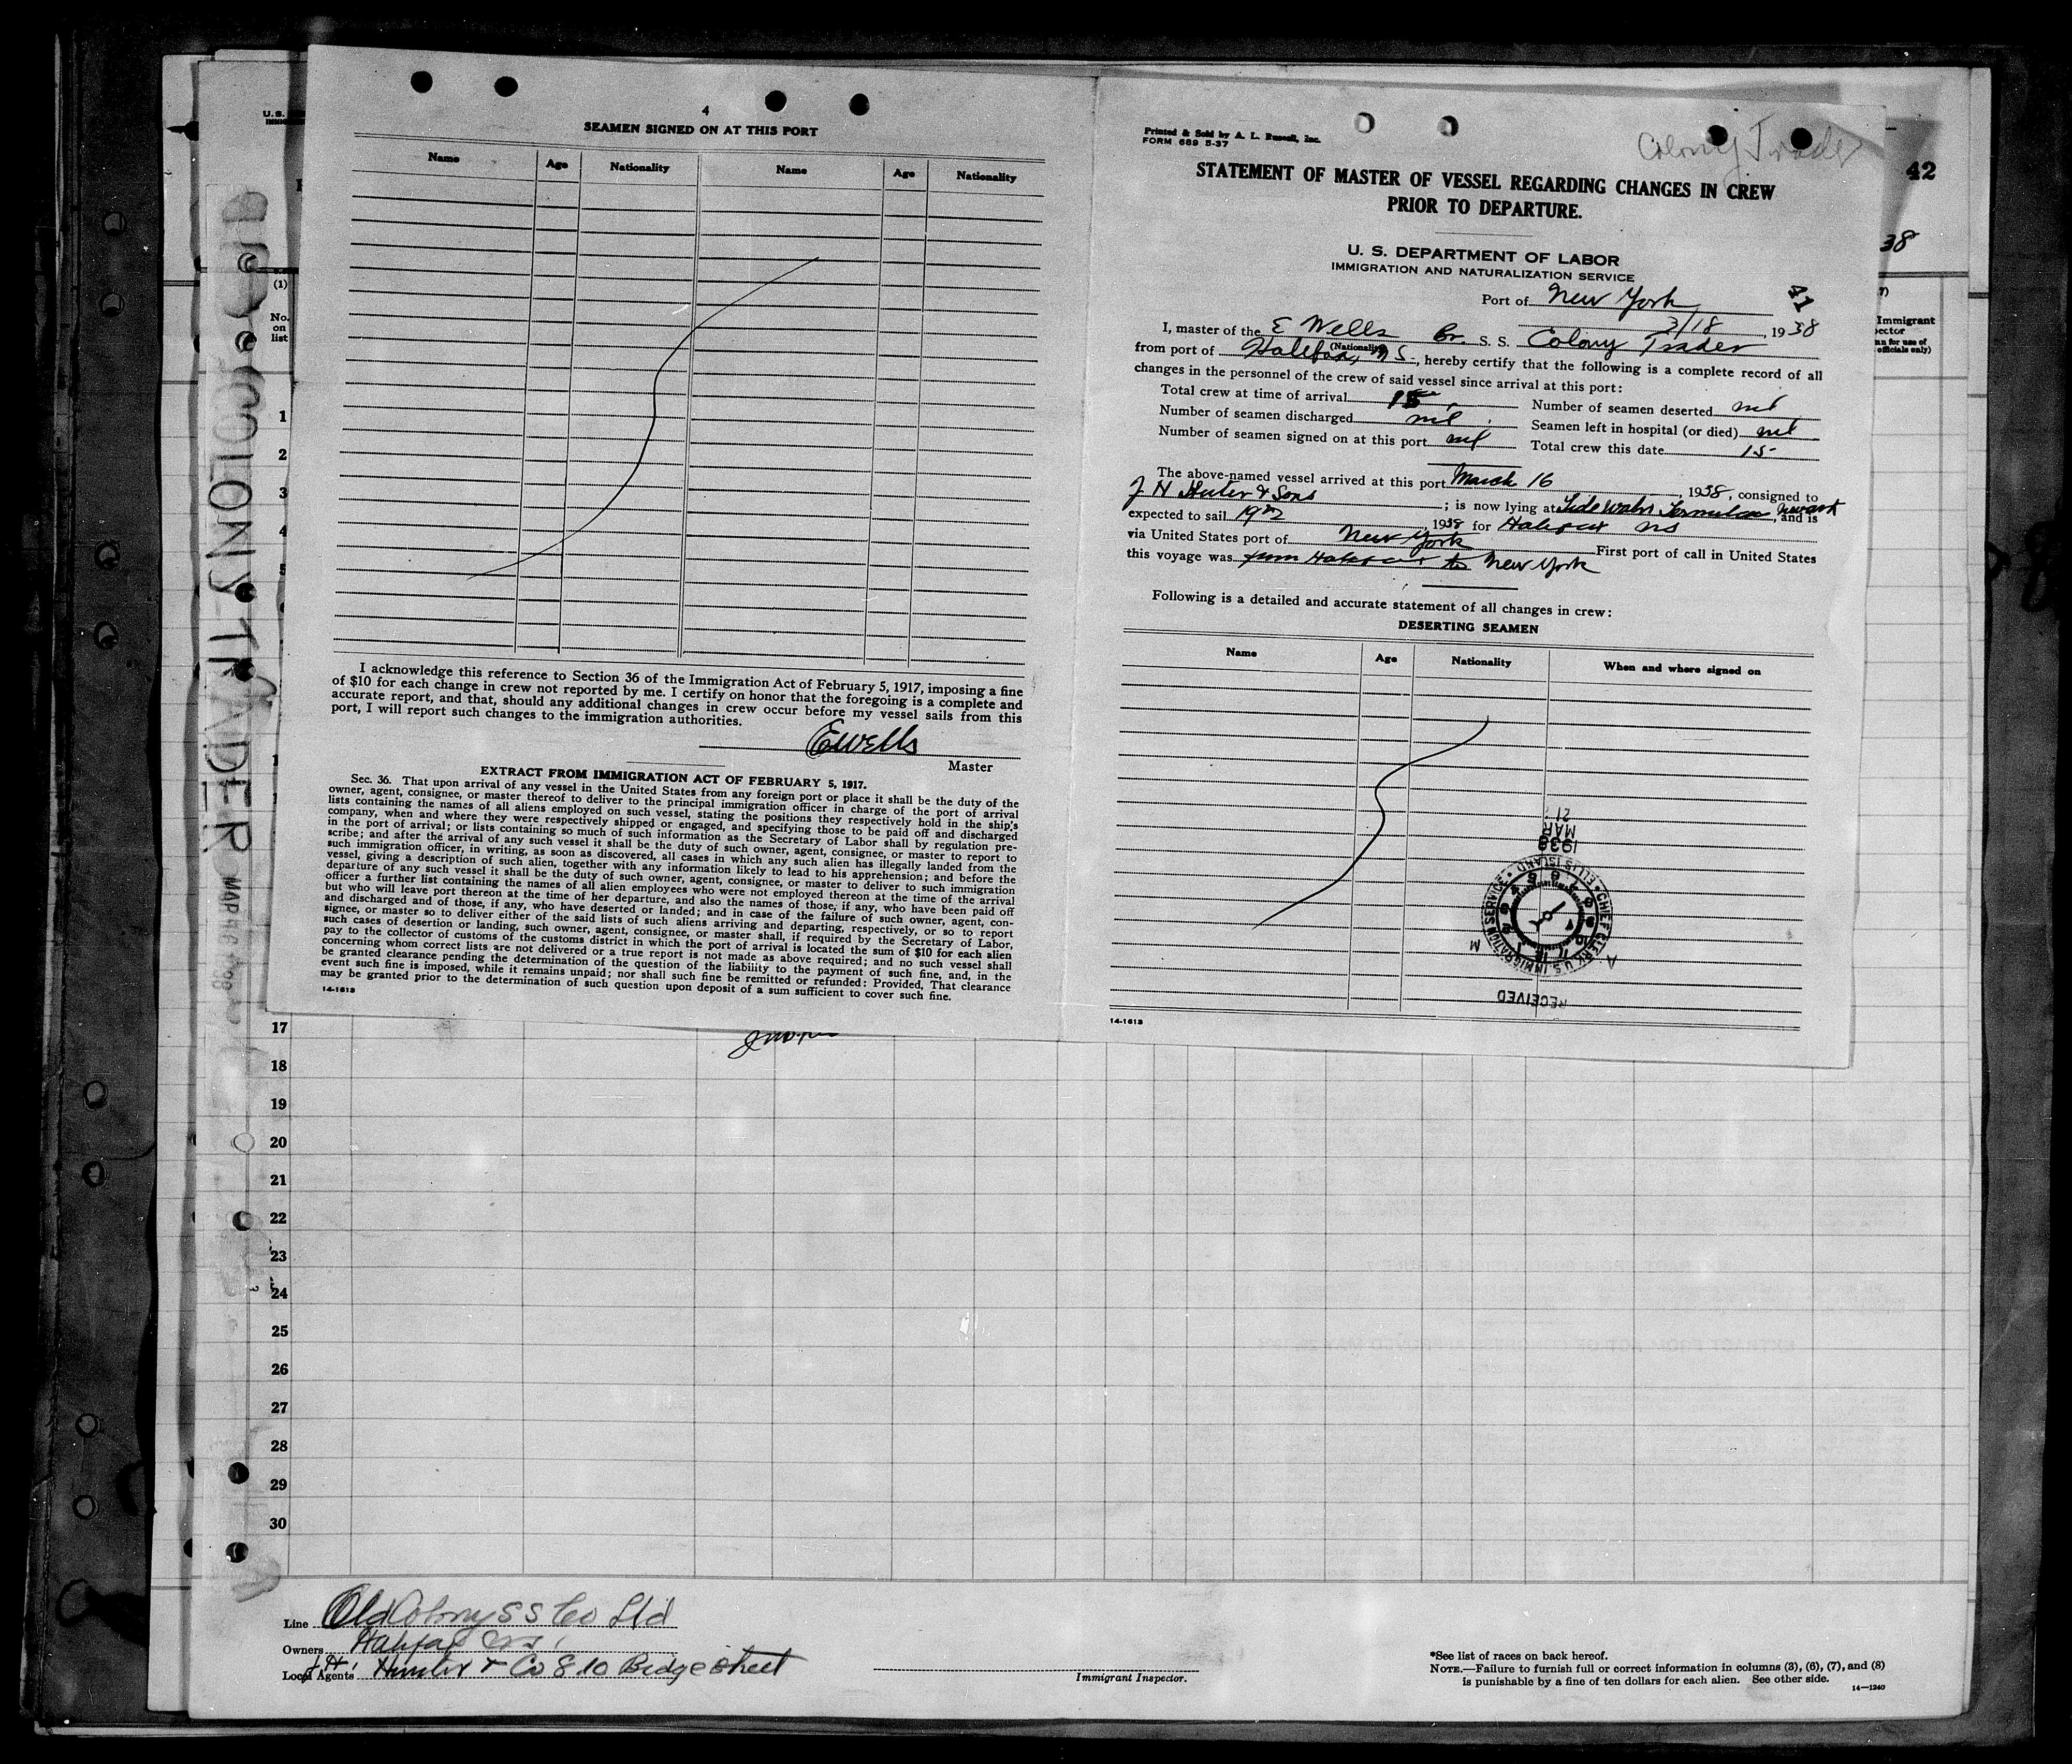 4
SEAMEN SIGNED ON AT THIS PORT
Name Age Nationality Name Age Nationality
I acknowledge this reference to Section 36 of the Immigration Act of February 5, 1917, imposing a fine
of $10 for each change in crew not reported by me. I certify on honor that the foregoing is a complete and
accurate report, and that, should any additional changes in crew occur before my vessel sails from this
port, I will report such changes to the immigration authorities.
EWells
Master
EXTRACT FROM IMMIGRATION ACT OF FEBRUARY 5, 1917.
Sec. 36. That upon arrival of any vessel in the United States from any foreign port or place it shall be the duty of the
owner, agent, consignee, or master thereof to deliver to the principal immigration officer in charge of the port of arrival
lists containing the names of all aliens employed on such vessel, stating the positions they respectively hold in the ship's
company, when and where they were respectively shipped or engaged, and specifying those to be paid off and discharged
in the port of arrival; or lists containing so much of such information as the Secretary of Labor shall by regulation pre-
scribe; and after the arrival of any such vessel it shall be the duty of such owner, agent, consignee, or master to report to
such immigration officer, in writing, as soon as discovered, all cases in which any such alien has illegally landed from the
vessel, giving a description of such alien, together with any information likely to lead to his apprehension; and before the
departure of any such vessel it shall be the duty of such owner, agent, consignee, or master to deliver to such immigration
officer a further list containing the names of all alien employees who were not employed thereon at the time of the arrival
but who will leave port thereon at the time of her departure, and also the names of those, if any, who have been paid off
and discharged and of those, if any, who have deserted or landed; and in case of the failure of such owner, agent, con-
signee, or master so to deliver either of the said lists of such aliens arriving and departing, respectively, or so to report
such cases of desertion or landing, such owner, agent, consignee, or master shall, if required by the Secretary of Labor,
pay to the collector of customs of the customs district in which the port of arrival is located the sum of $10 for each alien
concerning whom correct lists are not delivered or a true report is not made as above required; and no such vessel shall
be granted clearance pending the determination of the question of the liability to the payment of such fine, and, in the
event such fine is imposed, while it remains unpaid; nor shall such fine be remitted or refunded: Provided, That clearance
may be granted prior to the determination of such question upon deposit of a sum sufficient to cover such fine.
14-1613
Printed & Sold by A. L. Russell, Inc.
FORM 689 5-37
Colony Trader
STATEMENT OF MASTER OF VESSEL REGARDING CHANGES IN CREW
PRIOR TO DEPARTURE.
U. S. DEPARTMENT OF LABOR
IMMIGRATION AND NATURALIZATION SERVICE
41
Port of New York
3/18, 1938
I, master of the E Wells Br. S. S. Colony Trader
(Nationality)
from port of Halifax, N S, hereby certify that the following is a complete record of all
changes in the personnel of the crew of said vessel since arrival at this port:
Total crew at time of arrival 15 Number of seamen deserted nil
Number of seamen discharged nil Seamen left in hospital (or died) nil
Number of seamen signed on at this port nil Total crew this date 15
The above-named vessel arrived at this port March 16, 1938, consigned to
J H Huter & Sons; is now lying at Tide water Terminal Newark, and is
expected to sail 19th, 1938 for Halifax NS
via United States port of New York First port of call in United States
this voyage was from Halifax to New York
Following is a detailed and accurate statement of all changes in crew:
DESERTING SEAMEN
Name Age Nationality When and where signed on
21
MAR
1938
CHIEF CLERK U.S. IMMIGRATION SERVICE • ELLIS ISLAND •
A M
RECEIVED
14-1613
42
38
U. S.
(1)
No.
on
list
Immigrant
officials only)
COLONY TRADER
1
2
3
4
5
17
18
19
20
21
22
23
24
25
26
27
28
29
30
Line Old Colony S S Co Ltd
Owners Halifax
Local Agents J. H. Hunter & Co 8 10 Bridge street
Immigrant Inspector.
*See list of races on back hereof.
NOTE.—Failure to furnish full or correct information in columns (3), (6), (7), and (8)
is punishable by a fine of ten dollars for each alien. See other side.
14—1240